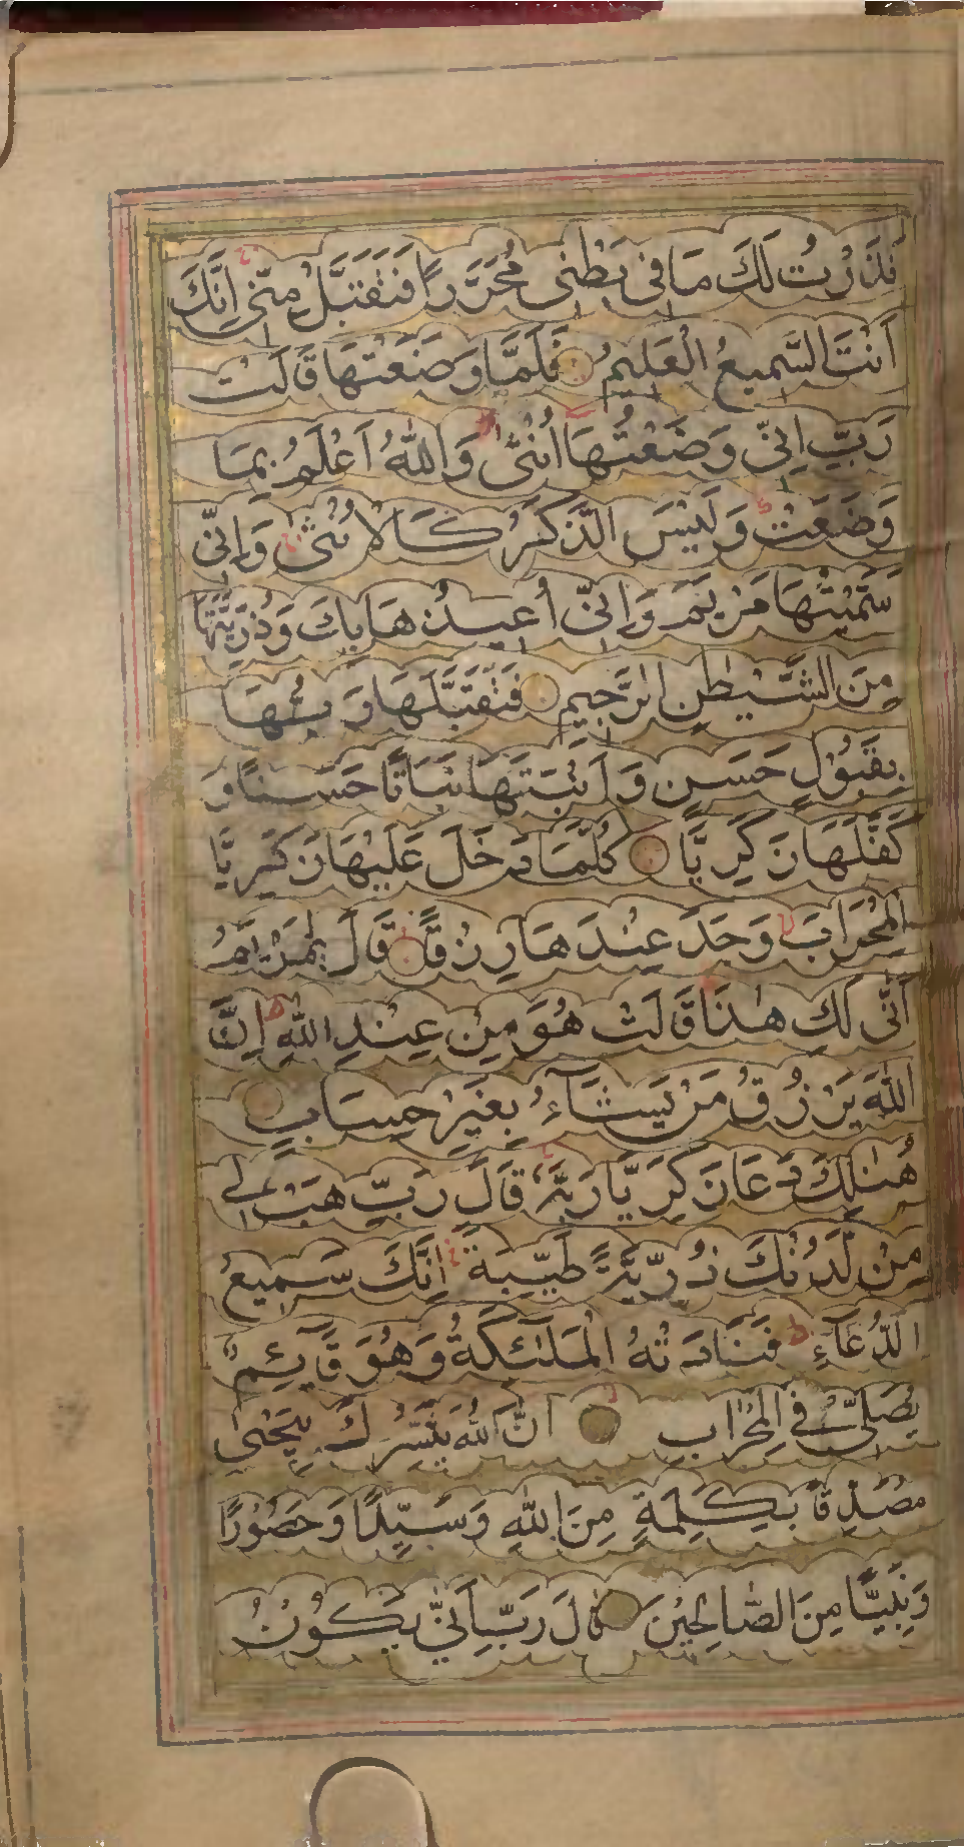 نَذَرْتُ لَكَ مَا فِى بَطْنِى مُحَرَّرًا فَتَقَبَّلْ مِنِّى اِنَّكَ
اَنْتَ السَّمِيعُ الْعَلِيمُ فَلَمَّا وَضَعَتْهَا قَالَتْ
رَبِّ اِنِّى وَضَعْتُهَا اُنْثٰى وَاللّٰهُ اَعْلَمُ بِمَا
وَضَعَتْ وَلَيْسَ الذَّكَرُ كَالْاُنْثٰى وَاِنِّى
سَمَّيْتُهَا مَرْيَمَ وَاِنِّى اُعِيذُهَا بِكَ وَذُرِّيَّتَهَا
مِنَ الشَّيْطٰنِ الرَّجِيمِ فَتَقَبَّلَهَا رَبُّهَا
بِقَبُوْلٍ حَسَنٍ وَاَنْبَتَهَا نَبَاتًا حَسَنًا وَ
كَفَّلَهَا زَكَرِيَّا كُلَّمَا دَخَلَ عَلَيْهَا زَكَرِيَّا
الْمِحْرَابَ وَجَدَ عِنْدَهَا رِزْقًا قَالَ يٰمَرْيَمُ
اَنّٰى لَكِ هٰذَا قَالَتْ هُوَ مِنْ عِنْدِ اللّٰهِ اِنَّ
اللّٰهَ يَرْزُقُ مَنْ يَشَآءُ بِغَيْرِ حِسَابٍ
هُنَالِكَ دَعَا زَكَرِيَّا رَبَّهُ قَالَ رَبِّ هَبْ لِى
مِنْ لَّدُنْكَ ذُرِّيَّةً طَيِّبَةً اِنَّكَ سَمِيعُ
الدُّعَآءِ فَنَادَتْهُ الْمَلٰٓئِكَةُ وَهُوَ قَآئِمٌ
يُصَلِّى فِى الْمِحْرَابِ اَنَّ اللّٰهَ يُبَشِّرُكَ بِيَحْيٰى
مُصَدِّقًا بِكَلِمَةٍ مِنَ اللّٰهِ وَسَيِّدًا وَحَصُوْرًا
وَنَبِيًّا مِنَ الصَّالِحِيْنَ قَالَ رَبِّ اَنّٰى يَكُوْنُ